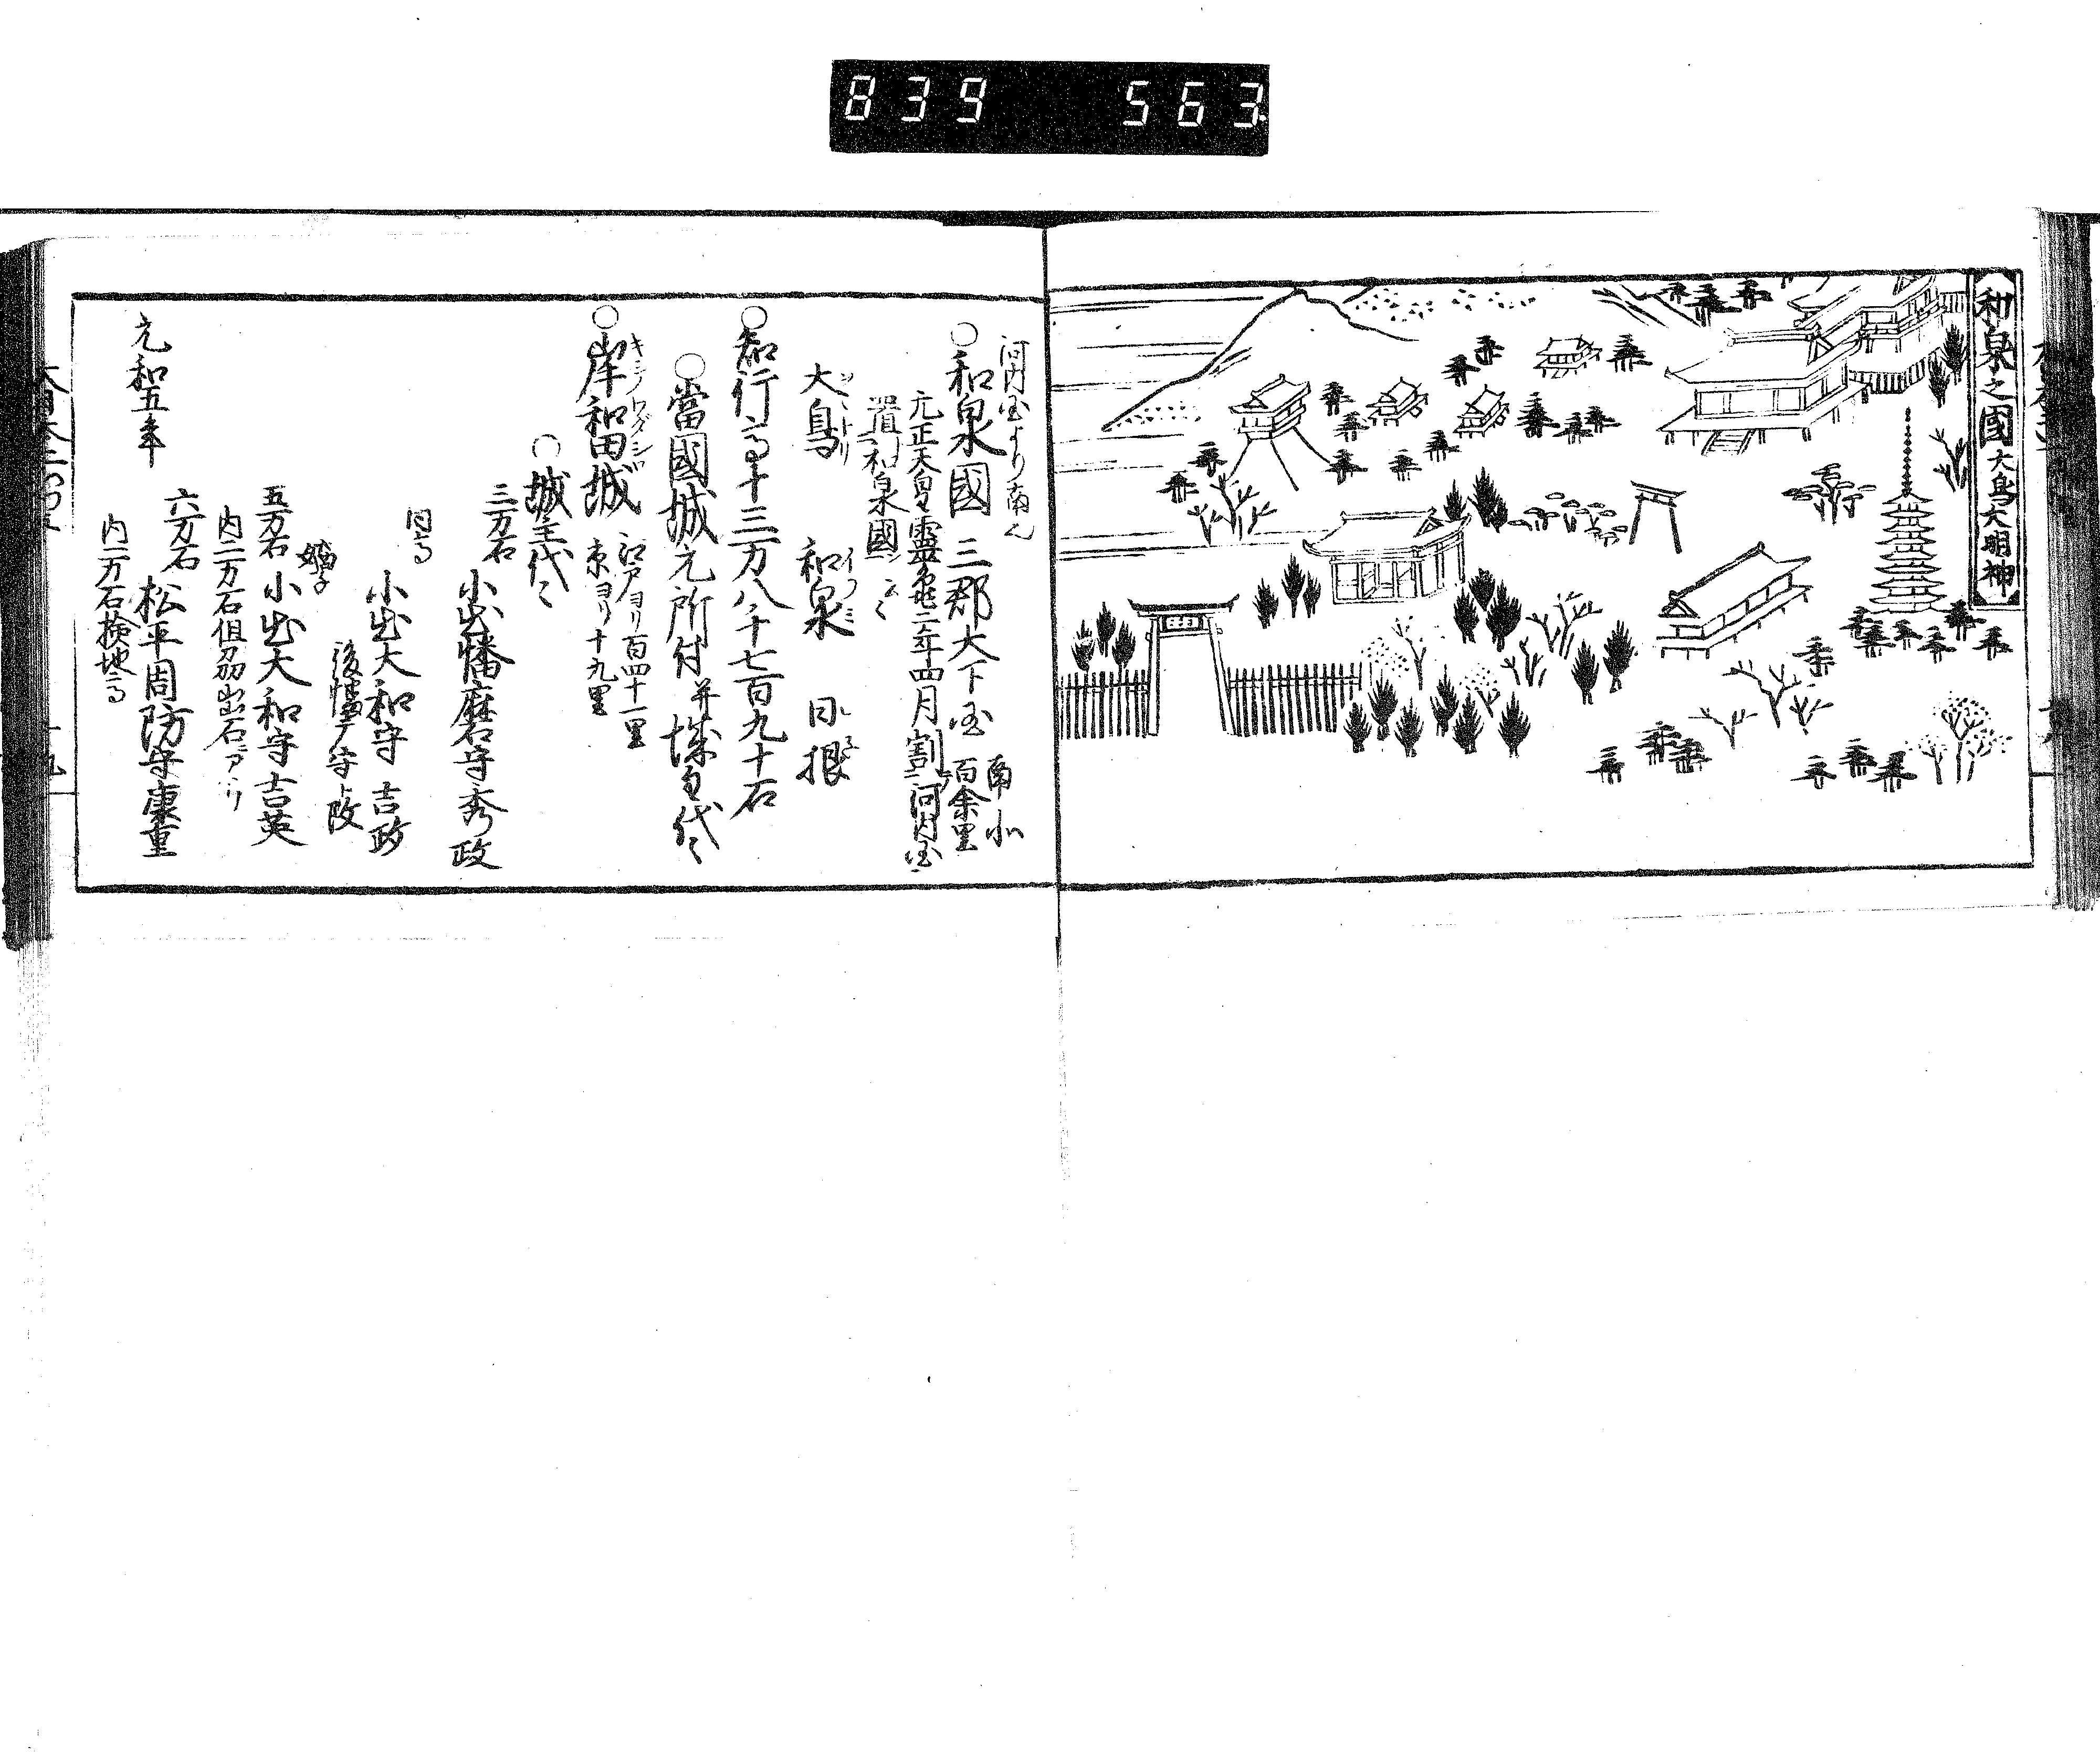 839 563
和泉之國大鳥大明神
河内国より南
○和泉國 三郡大下国 南北
百余里
元正天皇霊亀二年四月割河内国
置和泉國
大鳥 和泉 日根
イツミ
知行高十三万八千七百九十石
○當國城元所付并城主代々
○岸和田城 江戸ヨリ百四十一里
キシノワダシロ
京ヨリ十九里
○城主代々
三万石
小出播磨守秀政
同高
小出大和守吉政
後播广守改
嫡子
五万石 小出大和守吉英
内二万石但刕出石ニアリ
元和五年
六万石
松平周防守康重
内一万石検地高